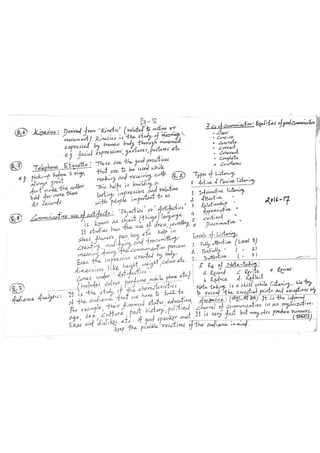 Pg-8
Q.4 Kinesics: Derived from 'Kinetic' (related to action or
movement) Kinesics is the study of meanings
expressed by human body through movement
e.g. facial expressions, gestures, postures etc
Q.5 Telephone Etiquette: These are the good practices
that are to be used while
making and receiving calls.
This helps in building a
lasting impression and relation
with people important to us.
e.g. pick up before 3 rings,
always greet
don't make the caller
hold for more than
seconds.
Q.6 Communicative use of artifacts: "Objectics" or "Artifactics"
is known as object (things) language
It studies how the use of dress, jewellery,
shoes, flowers, pen, key etc help in
creating, modifying and transmitting
meaning during the communication process.
Even the impression created by body
dimensions like height, weight, colour etc
comes under "artifactics"
(includes colour perfume mobile phone etc)
Q.7 Audience Analysis: It is the study of the characteristics
of the audience that we have to talk to.
For example their financial status, education,
age, sex, culture, past history, political
likes and dislikes etc. A good speaker must
keep the possible reactions of the audience in mind.
7 Cs of Communication: Qualities of good communication
Clear
Concise
Concrete
Correct
Coherent
Complete
Courteous
Q.8 Types of Listening
1 Active & Passive Listening
1 Informative Listening
2 Attentive "
3 Relationship "
4 Appreciative "
5 Critical "
6 Discriminative "
2016-17
Levels of Listening
1. Fully Attentive (Level 3)
2. Partially " ( " 2)
3. Inattentive ( " 1)
5 Rs of Note-taking:
1. Record 2 Recite
4 Reduce 5 Reflect
Note taking is a skill while listening. We try
to record the essential points and exceptions of
Grapevine It is the informal
channel of communication in an organization.
It is very fast but may also produce rumours.